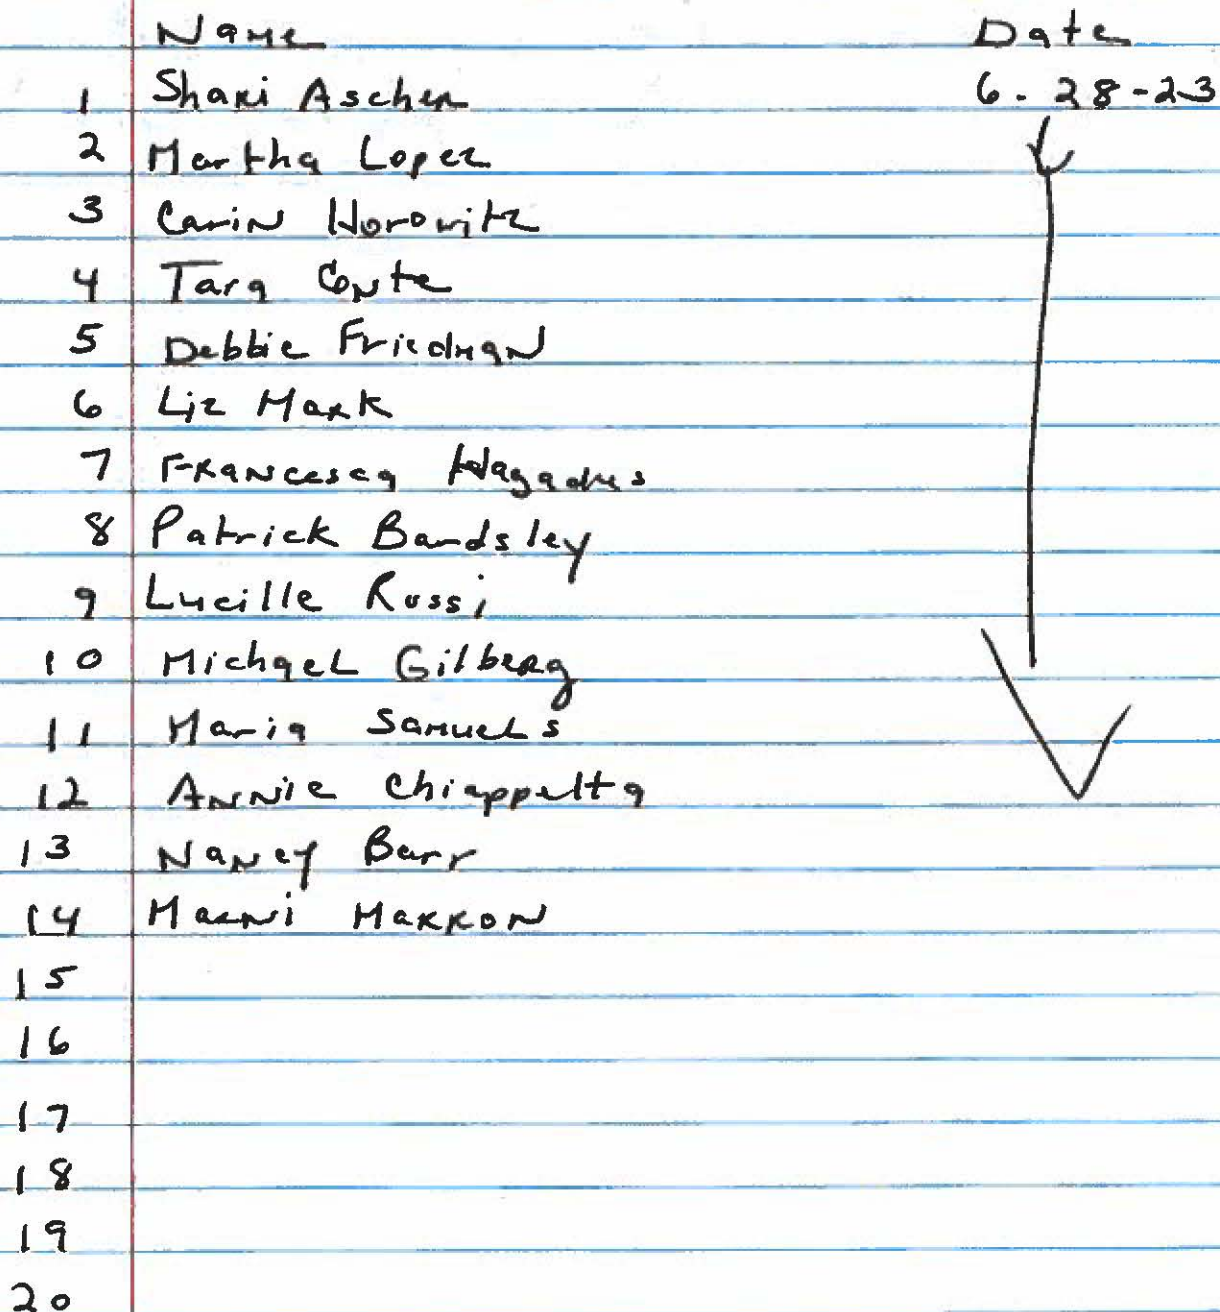 Name Date
1 Shari Ascher 6-28-23
2 Martha Lopez
3 Carin Horowitz
4 Tara Conte
5 Debbie Friedman
6 Liz Mark
7 Francesca Hagadus
8 Patrick Bardsley
9 Lucille Rossi
10 Michael Gilberg
11 Maria Samuels
12 Annie Chiappetta
13 Nancy Barr
14 Marni Marron
15
16
17
18
19
20